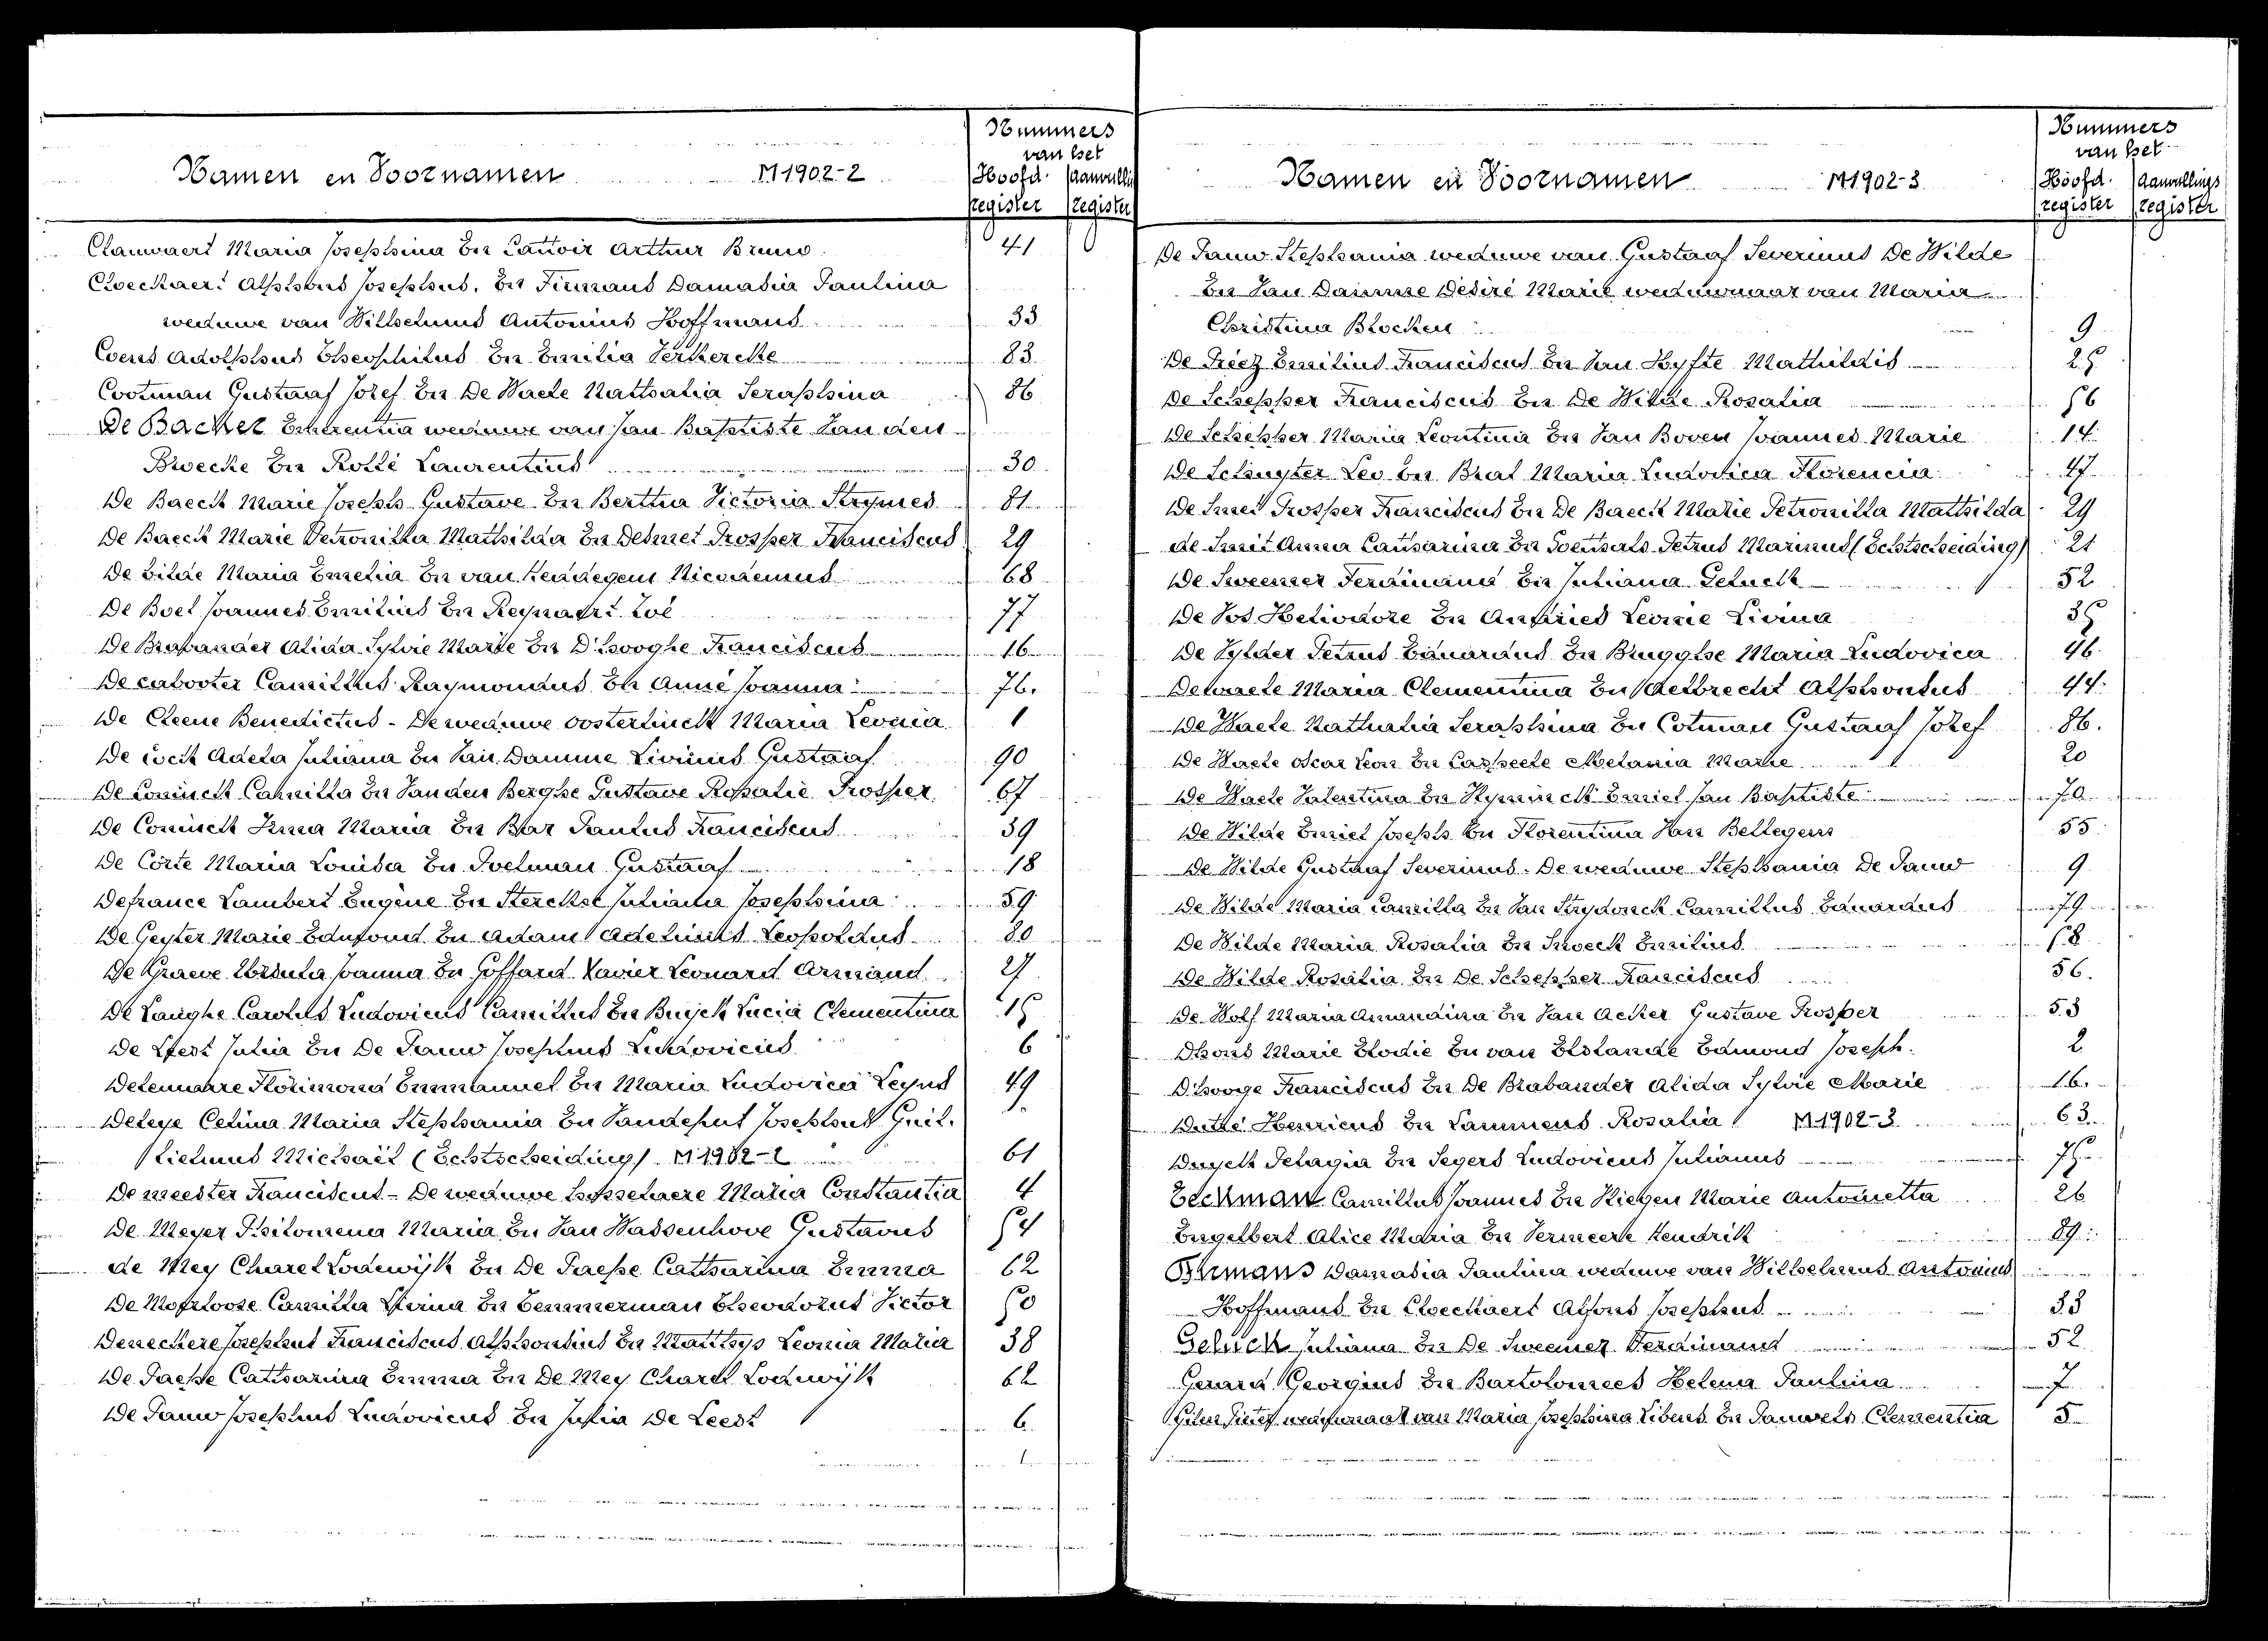 Nummers
van het
Namen en Voornamen M1902-2 Hoofd. Aanvulli
register register
Clauwaert Maria Josephina En Cattoir Arthur Bruno 41
Cloeckaert Alphons Josephus. En Firmans Damasia Paulina
weduwe van Wilhelmus Antonius Hoffmans 33
Coens Adolphus Theophilus En Emilia Verkercke 83
Cootman Gustaaf Jozef En De Waele Nathalia Seraphina 86
De Backer weduwe van Jan Baptiste Van den
Broecke En Rotté Laurentius 30
De Baeck Marie Joseph Gustave En Bertha Victoria Strymes 81
De Baeck Marie Petronilla Mathilda En Desmet Prosper Franciscus 29
De Bilde Maria Emelia En van Nicodemus 68
De Boel Joannes Emilius En Reynaert Zoé 77
De Brabander Alida Sylvie Marie En D'hooghe Franciscus 16
De cabooter Camillus Raymondus En Anné Joanna 76.
De Cleene Benedictus - De weduwe Oosterlinck Maria Leonia 1
De Cock Adela Juliana En Van Damme Livinus Gustaaf 90
De Coninck Camilla En Van den Berghe Gustave Rosalie Prosper 67
De Coninck Irma Maria En Bar Paulus Franciscus 39
De Corte Maria Louisa En Poelman Gustaaf 18
Defrance Lambert Eugène En Sterckx Juliana Josephina 59
De Geyter Marie Edmond En Adam Adelinus Leopoldus 80
De Graeve Ursula Joanna En Goffard Xavier Leonard Armand 27
De Langhe Carolus Ludovicus Camillus En Buyck Lucia Clementina 15
De Leest Julia En De Pauw Josephus Ludovicus 6
Delemarre Florimond Emmanuel En Maria Ludovica Leyns 49
Deleye Celina Maria Stephania En Vandeput Josephus Guil.
lielmus Michaël (Echtscheiding) M1902-2 61
De meester Franciscus - De weduwe Maria Constantia 4
De Meyer Philomena Maria En Van Wassenhove Gustavus 54
de Mey Charel Lodewijk En De Paepe Catharina Emma 62
De Moerloose Camilla Livina En Temmerman Theodorus Victor 50
Deneckere Josephus Franciscus Alphonsius En Matthys Leonia Maria 38
De Paepe Catharina Emma En De Mey Charel Lodewijk 62
De Pauw Josephus Ludovicus En Julia De Leest 6
Nummers
van het
Namen en Voornamen M1902-3 Hoofd. Aanvullings
register register
De Pauw Stephania weduwe van Gustaaf Severinus De Wilde
En Van Damme Desiré Marie weduwnaar van Maria
Christina Blocken 9
De Preez Emilius Franciscus En Van Hyfte Mathildis 25
De Schepper Franciscus En De Wilde Rosalia 56
De Schepper Maria Leontina En Van Boven Joannes Marie 14
De Schuyter Leo En Brat Maria Ludovica Florencia 47
De Smet Prosper Franciscus En De Baeck Marie Petronilla Mathilda 29
de Smit Anna Catharina En Petrus Marinus (Echtscheiding) 21
De Sweemer Ferdinand En Juliana Geluck 52
De Vos Heliodore En Leonie Livina 35
De Vylder Petrus Eduardus En Brugghe Maria Ludovica 46
Dewaele Maria Clementina En Aelbrecht Alphonsus 44
De Waele Nathalia Seraphina En Cotman Gustaaf Jozef 86.
De Waele Oscar Leon En Carpeele Melania Marie 20
De Waele Valentina En Emiel Jan Baptiste 70
De Wilde Emiel Joseph En Florentina Van Bellegem 55
De Wilde Gustaaf Severinus. De weduwe Stephania De Pauw 9
De Wilde Maria Camilla En Van Strydonck Camillus Eduardus 79
De Wilde Maria Rosalia En Snoeck Emilius 58
De Wilde Rosalia En De Schepper Franciscus 56.
De Wolf Maria Amandina En Van Acker Gustave Prosper 53
Dhons Marie Elodie En van Holande Edmond Joseph. 2
D'hooge Franciscus En De Brabander Alida Sylvie Marie 16.
Dutté Henricus En Lammens Rosalia M1902-3 63.
Duyck Pelagia En Segers Ludovicus Julianus 75
Eeckman Camillus Joannes En Kiegen Marie Antoinetta 26
Engelbert Alice Maria En Vermeere Hendrik 89
Firmans Damasia Paulina weduwe van Wilhelmus Antonius
Hoffmans En Cloeckaert Alfons Josephus 33
Geluck Juliana En De Sweemer Ferdinand 52
Gerard Georgius En Bartolomees Helena Paulina 7
weduwnaar van Maria Josephina Libens En Pauwels Clementia 5